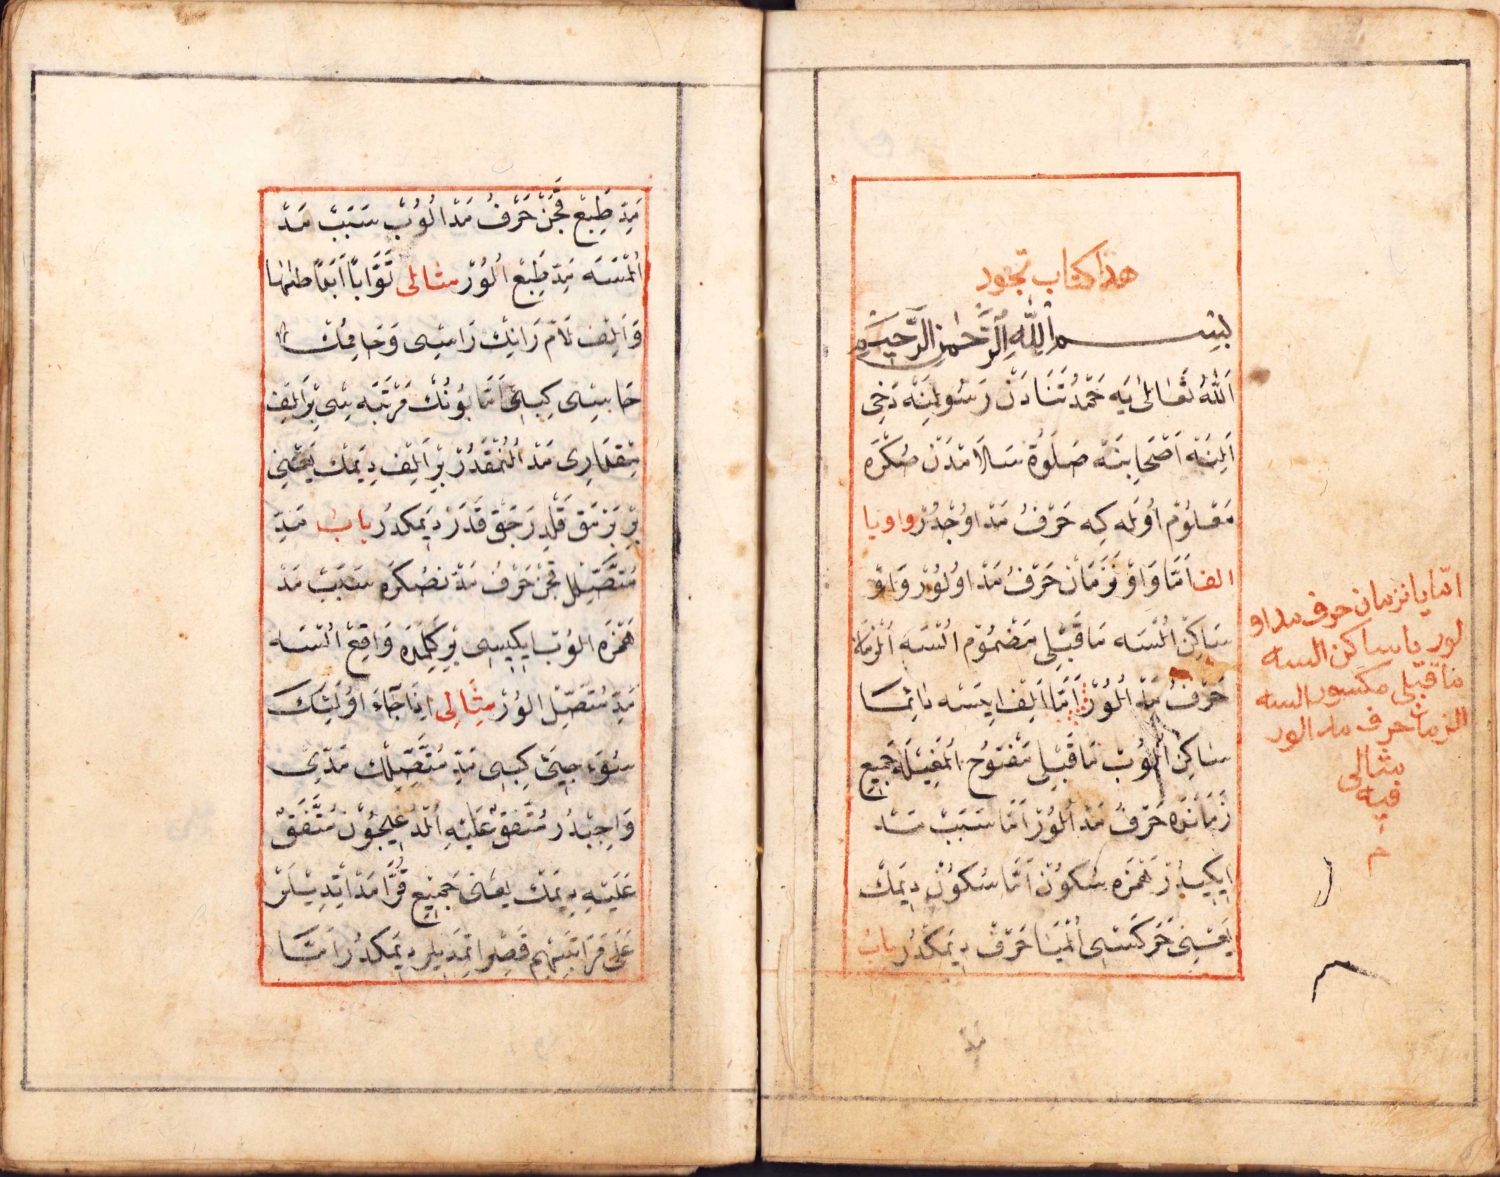 هذا كتاب تجود
بِسْمِ اللّٰهِ الرَّحْمٰنِ الرَّحِيمِ
اَللّٰهُ تَعَالٰى يَه حَمْدُ ثَنَادَنْ رَسُولِنَه دَخِى
اَلِنَه اَصْحَابِنَه صَلَوةُ سَلَامْدَنْ صُكْرَه
مَعْلُومْ اوُلَه كِه حَرْفُ مَدْ اوُجْدُرْ واو يا
الف اَمَّا وَاوْ نَزَمَانْ حَرْفُ مَدْ اوُلُورْ وَاوْ
سَاكِنْ اُلْسَه مَاقَبْلِى مَضْمُومْ اُلْسَه اُلْزَمَانْ
حَرْفُ مَدْ اُلُورْ اَمَّا اَلِفْ اِيسَه دَائِمَا
سَاكِنْ اُلُوبْ مَاقَبْلِى مَفْتُوحْ اُلْمَغِيلَه جَمِيعِ
زَمَانْدَه حَرْفُ مَدْ اُلُورْ اَمَّا سَبَبْ مَدْ
اِيكِيدُرْ هَمْزَه سُكُونْ اَمَّا سُكُونْ دِيمَكْ
يَعْنِى حَرَكَسِى اُلْمَيَا حَرْفْ دِيمَكْدُرْ بابْ
اما يا نزمان حرف مد او
لور يا ساكن السه
ماقبلى مكسور السه
الزمان حرف مد الور
مثالى
فيه
م
مَدّ
مَدِّ طَبِيعْ قَچَنْ حَرْفُ مَدْ اُلُوبْ سَبَبْ مَدْ
اُلْمَسَه مَدِّ طَبِيعْ اُلُورْ مثالى تَوَّابًا اَبَدًا
وَ اَلِفْ لَامْ رَانِكْ رَاسِى وَحَامِمْكْ
حَاسِى كِبِى اَمَّا بُونُكْ مَرْتَبَه سِى بِرْ اَلِفْ
مِقْدَارِى مَدْ اُلُنْمَقْدُرْ بِرْ اَلِفْ دِيمَكْ يَعْنِى
بِرْ پَرْمَقْ قَلْدِرَجَقْ قَدَرْ دِيمَكْدُرْ باب مَدِّ
مُتَّصِلْ قَچَنْ حَرْفُ مَدْنْ صُكْرَه سَبَبْ مَدْ
هَمْزَه اُلُوبْ اِيكِيسِى بِرْ كَلِمَدَه وَاقِعْ اُلْسَه
مَدِّ مُتَّصِلْ اُلُورْ مِثَالِى اِذَا جَاءَ اُولٰئِكَ
سُوءَ جِيئَ كِبِى مَدِّ مُتَّصِلِكْ مَدِّى
وَاجِبْدُرْ مُتَّفَقٌ عَلَيْهِ اُلْدُغِيچُونْ مُتَّفَقٌ
عَلَيْهِ دِيمَكْ يَعْنِى جَمِيعِ قُرَّا مَدْ اِتْدِيلَرْ
عَلَى مَرَاتِبِهِمْ قَصِرْ اِتْمَدِيلَرْ دِيمَكْدُرْ اَمَّا